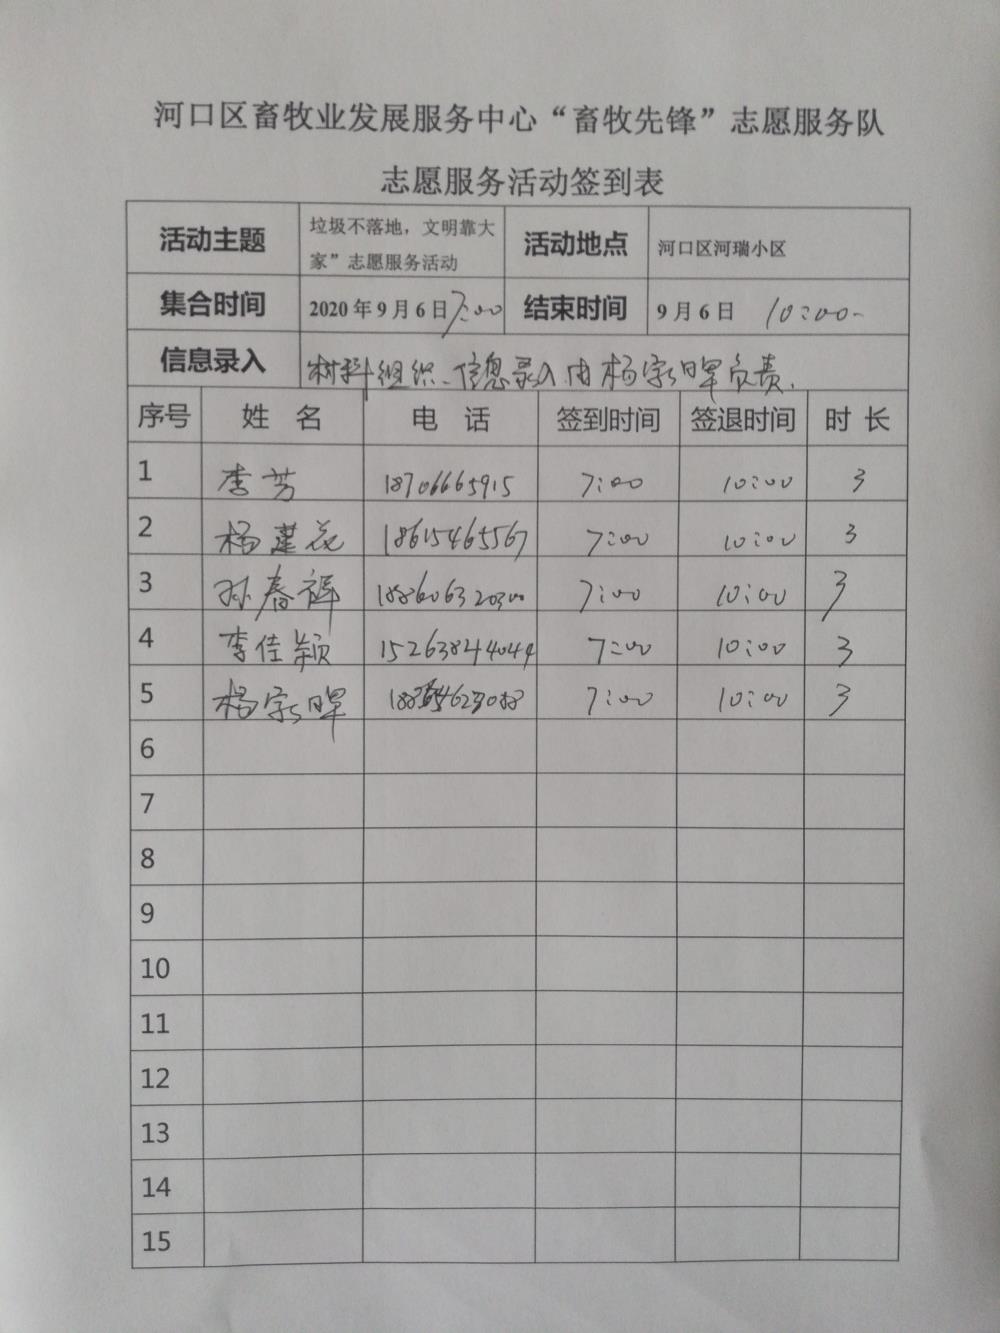 河口区畜牧业发展服务中心“畜牧先锋”志愿服务队
志愿服务活动签到表
活动主题 垃圾不落地，文明靠大 活动地点 河口区河瑞小区
家”志愿服务活动
集合时间 2020年9月6日 7:00 结束时间 9月6日 10:00
信息录入 材料组织、信息录入由杨家晖负责.
序号 姓 名 电 话 签到时间 签退时间 时 长
1 李芳 18706665915 7:00 10:00 3
2 杨莲花 18615465567 7:00 10:00 3
3 孙春辉 7:00 10:00 3
4 李佳颖 15263844044 7:00 10:00 3
5 杨家晖 7:00 10:00 3
6
7
8
9
10
11
12
13
14
15